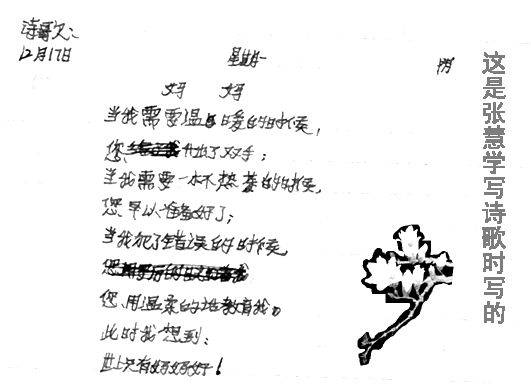 诗歌次:
12月17日 星期一 阴
妈 妈
当我需要温暖的时候,
您 伸出了双手;
当我需要一杯热茶的时候,
您早以准备好了;
当我犯了错误的时候,
您用温柔的地教育我。
此时我想到:
世上只有妈妈好!
这是张慧学写诗歌时写的